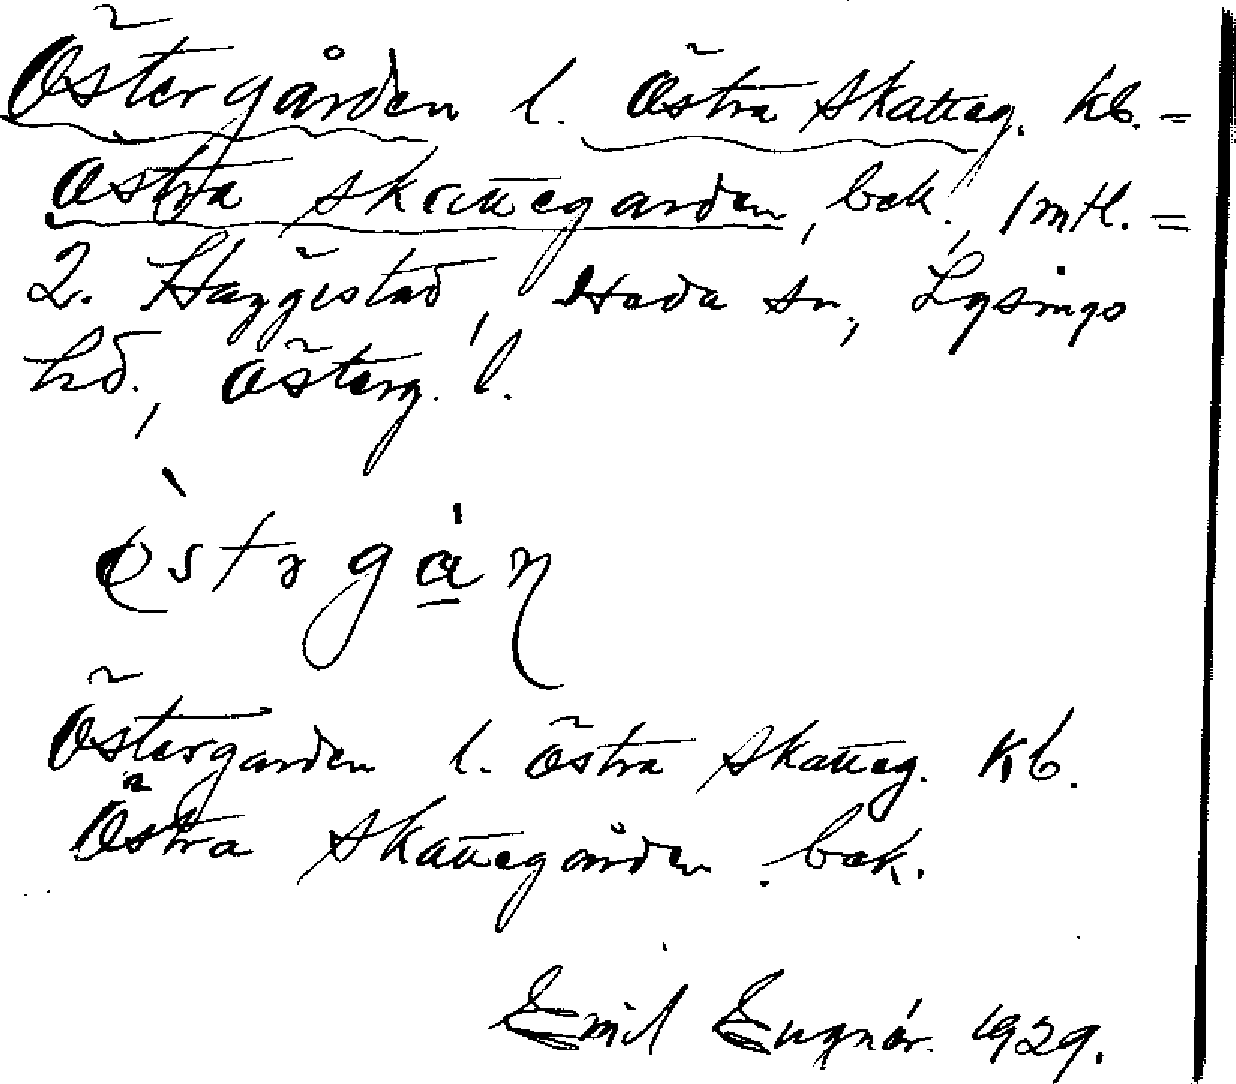 Östergården l. Östra Skatteg. Kb. =
Östra Skattegården, bek., 1 mtl. =
2. Häggestad, Heda sn, Lysings
hd., Österg. l.
Östergården l. Östra Skatteg. Kb.
Östra Skattegården. bek.
Emil 1929.